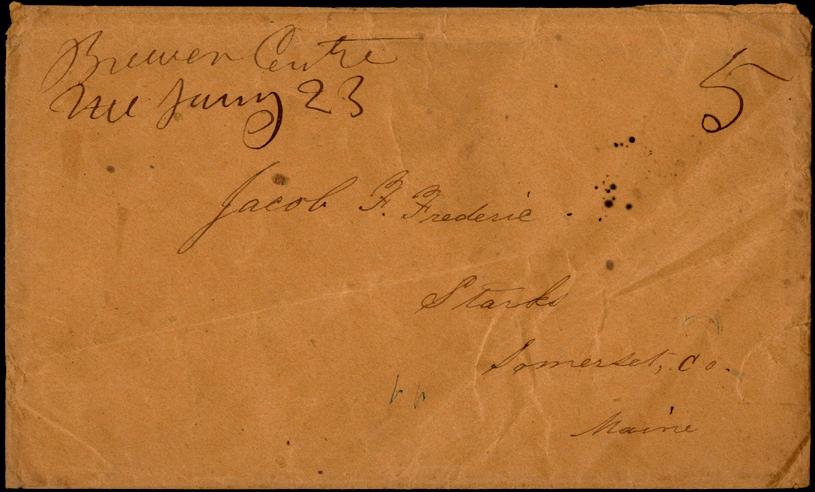 Brewer Centre
Me Jany 23
5
Jacob F. Frederic
Starks
Somerset, Co.
Maine